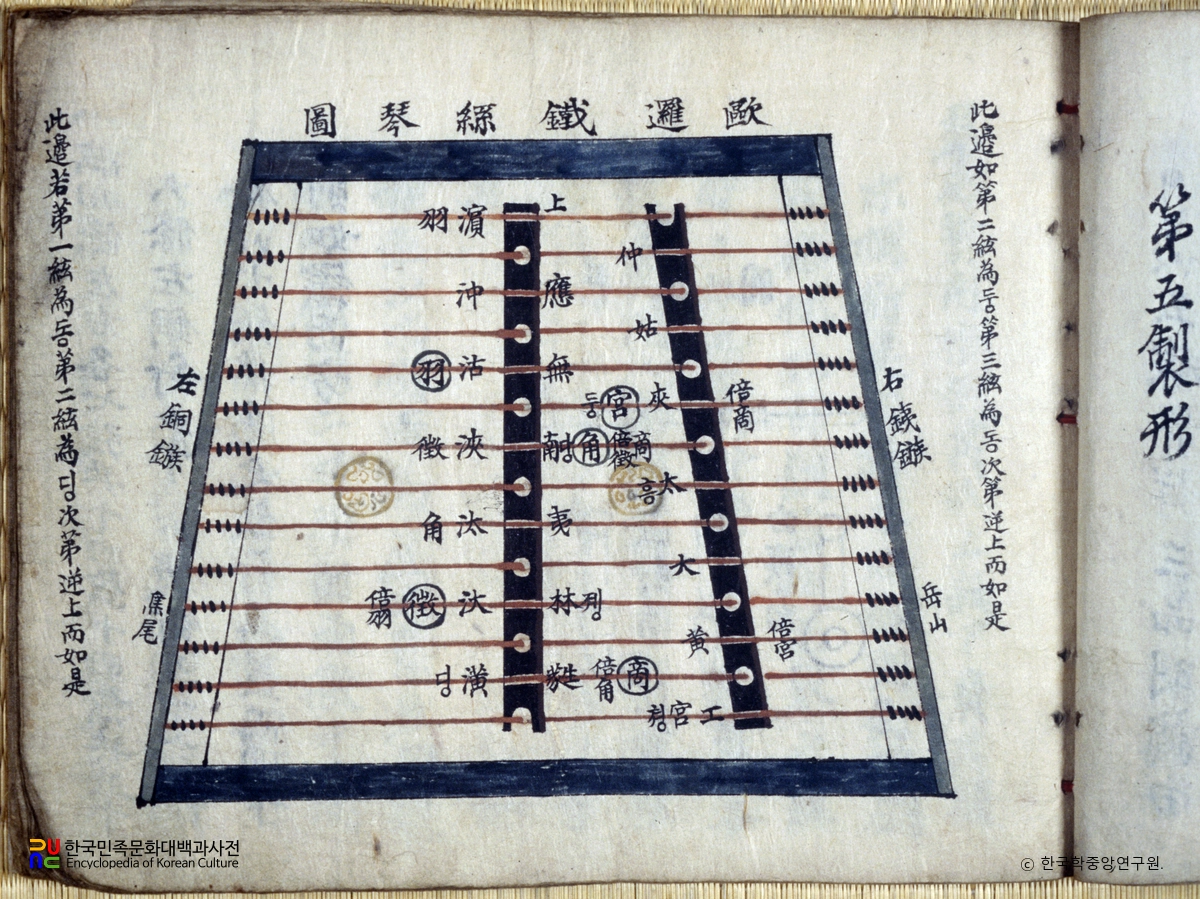 歐邏鐵絲琴圖
此邊如第二絃為둥第三絃為동次第逆上而如是
右鐵鏃
岳山
上
仲
應
姑
無
夾
倍商
宮
둥
角
倍徵
商
太
흥
夷
大
林
징
黃
倍宮
蕤
倍角
商
工
宮
濱
羽
沖
沽
羽
浹
徵
汰
角
汏
徵
倍羽
潢
당
左銅鏃
尾
此邊若第一絃為동第二絃為딩次第逆上而如是
第五製形
한국민족문화대백과사전
Encyclopedia of Korean Culture
ⓒ 한국학중앙연구원.